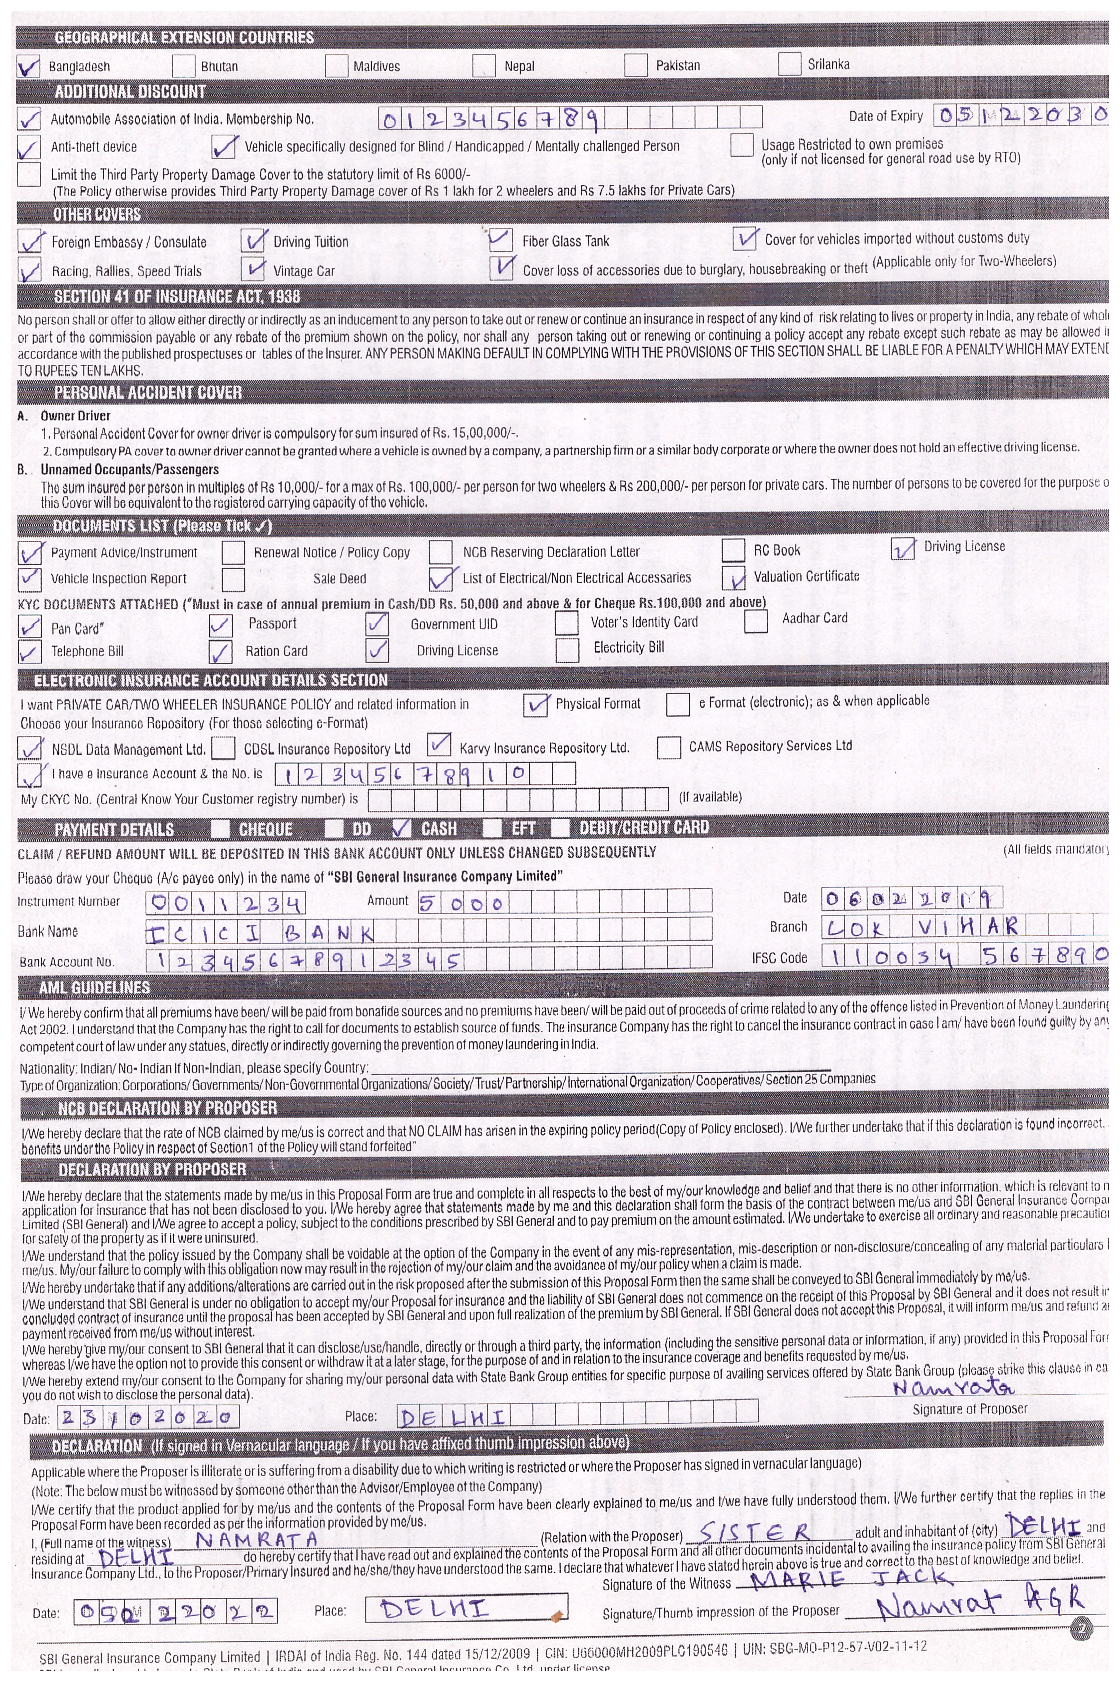 GEOGRAPHICAL EXTENSION COUNTRIES
Bangladesh Bhutan Maldives Nepal Pakistan Srilanka
ADDITIONAL DISCOUNT
Automobile Association of India. Membership No. 0123456789 Date of Expiry 05122030
Anti-theft device Vehicle specifically designed for Blind / Handicapped / Mentally challenged Person Usage Restricted to own premises
(only if not licensed for general road use by RTO)
Limit the Third Party Property Damage Cover to the statutory limit of Rs 6000/-
(The Policy otherwise provides Third Party Property Damage cover of Rs 1 lakh for 2 wheelers and Rs 7.5 lakhs for Private Cars)
OTHER COVERS
Foreign Embassy / Consulate Driving Tuition Fiber Glass Tank Cover for vehicles imported without customs duty
Racing, Rallies, Speed Trials Vintage Car Cover loss of accessories due to burglary, housebreaking or theft (Applicable only for Two-Wheelers)
SECTION 41 OF INSURANCE ACT, 1938
No person shall or offer to allow either directly or indirectly as an inducement to any person to take out or renew or continue an insurance in respect of any kind of risk relating to lives or property in India, any rebate of whol
or part of the commission payable or any rebate of the premium shown on the policy, nor shall any person taking out or renewing or continuing a policy accept any rebate except such rebate as may be allowed i
accordance with the published prospectuses or tables of the Insurer. ANY PERSON MAKING DEFAULT IN COMPLYING WITH THE PROVISIONS OF THIS SECTION SHALL BE LIABLE FOR A PENALTY WHICH MAY EXTEND
TO RUPEES TEN LAKHS.
PERSONAL ACCIDENT COVER
A. Owner Driver
1. Personal Accident Cover for owner driver is compulsory for sum insured of Rs. 15,00,000/-.
2. Compulsory PA cover to owner driver cannot be granted where a vehicle is owned by a company, a partnership firm or a similar body corporate or where the owner does not hold an effective driving license.
B. Unnamed Occupants/Passengers
The sum insured per person in multiples of Rs 10,000/- for a max of Rs. 100,000/- per person for two wheelers & Rs 200,000/- per person for private cars. The number of persons to be covered for the purpose o
this Cover will be equivalent to the registered carrying capacity of the vehicle.
DOCUMENTS LIST (Please Tick ✓)
Payment Advice/Instrument Renewal Notice / Policy Copy NCB Reserving Declaration Letter RC Book Driving License
Vehicle Inspection Report Sale Deed List of Electrical/Non Electrical Accessaries Valuation Certificate
KYC DOCUMENTS ATTACHED (*Must in case of annual premium in Cash/DD Rs. 50,000 and above & for Cheque Rs.100,000 and above)
Pan Card* Passport Government UID Voter's Identity Card Aadhar Card
Telephone Bill Ration Card Driving License Electricity Bill
ELECTRONIC INSURANCE ACCOUNT DETAILS SECTION
I want PRIVATE CAR/TWO WHEELER INSURANCE POLICY and related information in Physical Format e Format (electronic); as & when applicable
Choose your Insurance Repository (For those selecting e-Format)
NSDL Data Management Ltd. CDSL Insurance Repository Ltd Karvy Insurance Repository Ltd. CAMS Repository Services Ltd
I have e Insurance Account & the No. is 12345678910
My CKYC No. (Central Know Your Customer registry number) is (If available)
PAYMENT DETAILS CHEQUE DD CASH EFT DEBIT/CREDIT CARD
CLAIM / REFUND AMOUNT WILL BE DEPOSITED IN THIS BANK ACCOUNT ONLY UNLESS CHANGED SUBSEQUENTLY (All fields mandatory
Please draw your Cheque (A/c payee only) in the name of "SBI General Insurance Company Limited"
Instrument Number 0011234 Amount 5000 Date 06022019
Bank Name ICICI BANK Branch LOK VIHAR
Bank Account No. 12345678912345 IFSC Code 110034 567890
AML GUIDELINES
I/We hereby confirm that all premiums have been/ will be paid from bonafide sources and no premiums have been/ will be paid out of proceeds of crime related to any of the offence listed in Prevention of Money Laundering
Act 2002. I understand that the Company has the right to call for documents to establish source of funds. The insurance Company has the right to cancel the insurance contract in case I am/ have been found guilty by any
competent court of law under any statues, directly or indirectly governing the prevention of money laundering in India.
Nationality: Indian/ No- Indian If Non-Indian, please specify Country:
Type of Organization: Corporations/ Governments/ Non-Governmental Organizations/ Society/ Trust/ Partnership/ International Organization/ Cooperatives/ Section 25 Companies
NCB DECLARATION BY PROPOSER
I/We hereby declare that the rate of NCB claimed by me/us is correct and that NO CLAIM has arisen in the expiring policy period(Copy of Policy enclosed). I/We further undertake that if this declaration is found incorrect.
benefits under the Policy in respect of Section1 of the Policy will stand forfeited"
DECLARATION BY PROPOSER
I/We hereby declare that the statements made by me/us in this Proposal Form are true and complete in all respects to the best of my/our knowledge and belief and that there is no other information, which is relevant to m
application for Insurance that has not been disclosed to you. I/We hereby agree that statements made by me and this declaration shall form the basis of the contract between me/us and SBI General Insurance Compa
Limited (SBI General) and I/We agree to accept a policy, subject to the conditions prescribed by SBI General and to pay premium on the amount estimated. I/We undertake to exercise all ordinary and reasonable precautio
for safety of the property as if it were uninsured.
I/We understand that the policy issued by the Company shall be voidable at the option of the Company in the event of any mis-representation, mis-description or non-disclosure/concealing of any material particulars
me/us. My/our failure to comply with this obligation now may result in the rejection of my/our claim and the avoidance of my/our policy when a claim is made.
I/We hereby undertake that if any additions/alterations are carried out in the risk proposed after the submission of this Proposal Form then the same shall be conveyed to SBI General immediately by me/us.
I/We understand that SBI General is under no obligation to accept my/our Proposal for insurance and the liability of SBI General does not commence on the receipt of this Proposal by SBI General and it does not result i
concluded contract of insurance until the proposal has been accepted by SBI General and upon full realization of the premium by SBI General. If SBI General does not accept this Proposal, it will inform me/us and refund a
payment received from me/us without interest.
I/We hereby give my/our consent to SBI General that it can disclose/use/handle, directly or through a third party, the information (including the sensitive personal data or information, if any) provided in this Proposal For
whereas I/we have the option not to provide this consent or withdraw it at a later stage, for the purpose of and in relation to the insurance coverage and benefits requested by me/us.
I/We hereby extend my/our consent to the Company for sharing my/our personal data with State Bank Group entities for specific purpose of availing services offered by State Bank Group (please strike this clause in ca
you do not wish to disclose the personal data). Namrata
Date: 23102020 Place: DELHI Signature of Proposer
DECLARATION (If signed in Vernacular language / If you have affixed thumb impression above)
Applicable where the Proposer is illiterate or is suffering from a disability due to which writing is restricted or where the Proposer has signed in vernacular language)
(Note: The below must be witnessed by someone other than the Advisor/Employee of the Company)
I/We certify that the product applied for by me/us and the contents of the Proposal Form have been clearly explained to me/us and I/we have fully understood them. I/We further certify that the replies in the
Proposal Form have been recorded as per the information provided by me/us.
I, (Full name of the witness) NAMRATA (Relation with the Proposer) SISTER adult and inhabitant of (city) DELHI and
residing at DELHI do hereby certify that I have read out and explained the contents of the Proposal Form and all other documents incidental to availing the insurance policy from SBI General
Insurance Company Ltd., to the Proposer/Primary Insured and he/she/they have understood the same. I declare that whatever I have stated herein above is true and correct to the best of knowledge and belief.
Signature of the Witness MARIE JACK
Date: 05022022 Place: DELHI Signature/Thumb impression of the Proposer Namrat AGR
2
SBI General Insurance Company Limited | IRDAI of India Reg. No. 144 dated 15/12/2009 | CIN: U66000MH2009PLC190546 | UIN: SBG-MO-P12-57-V02-11-12